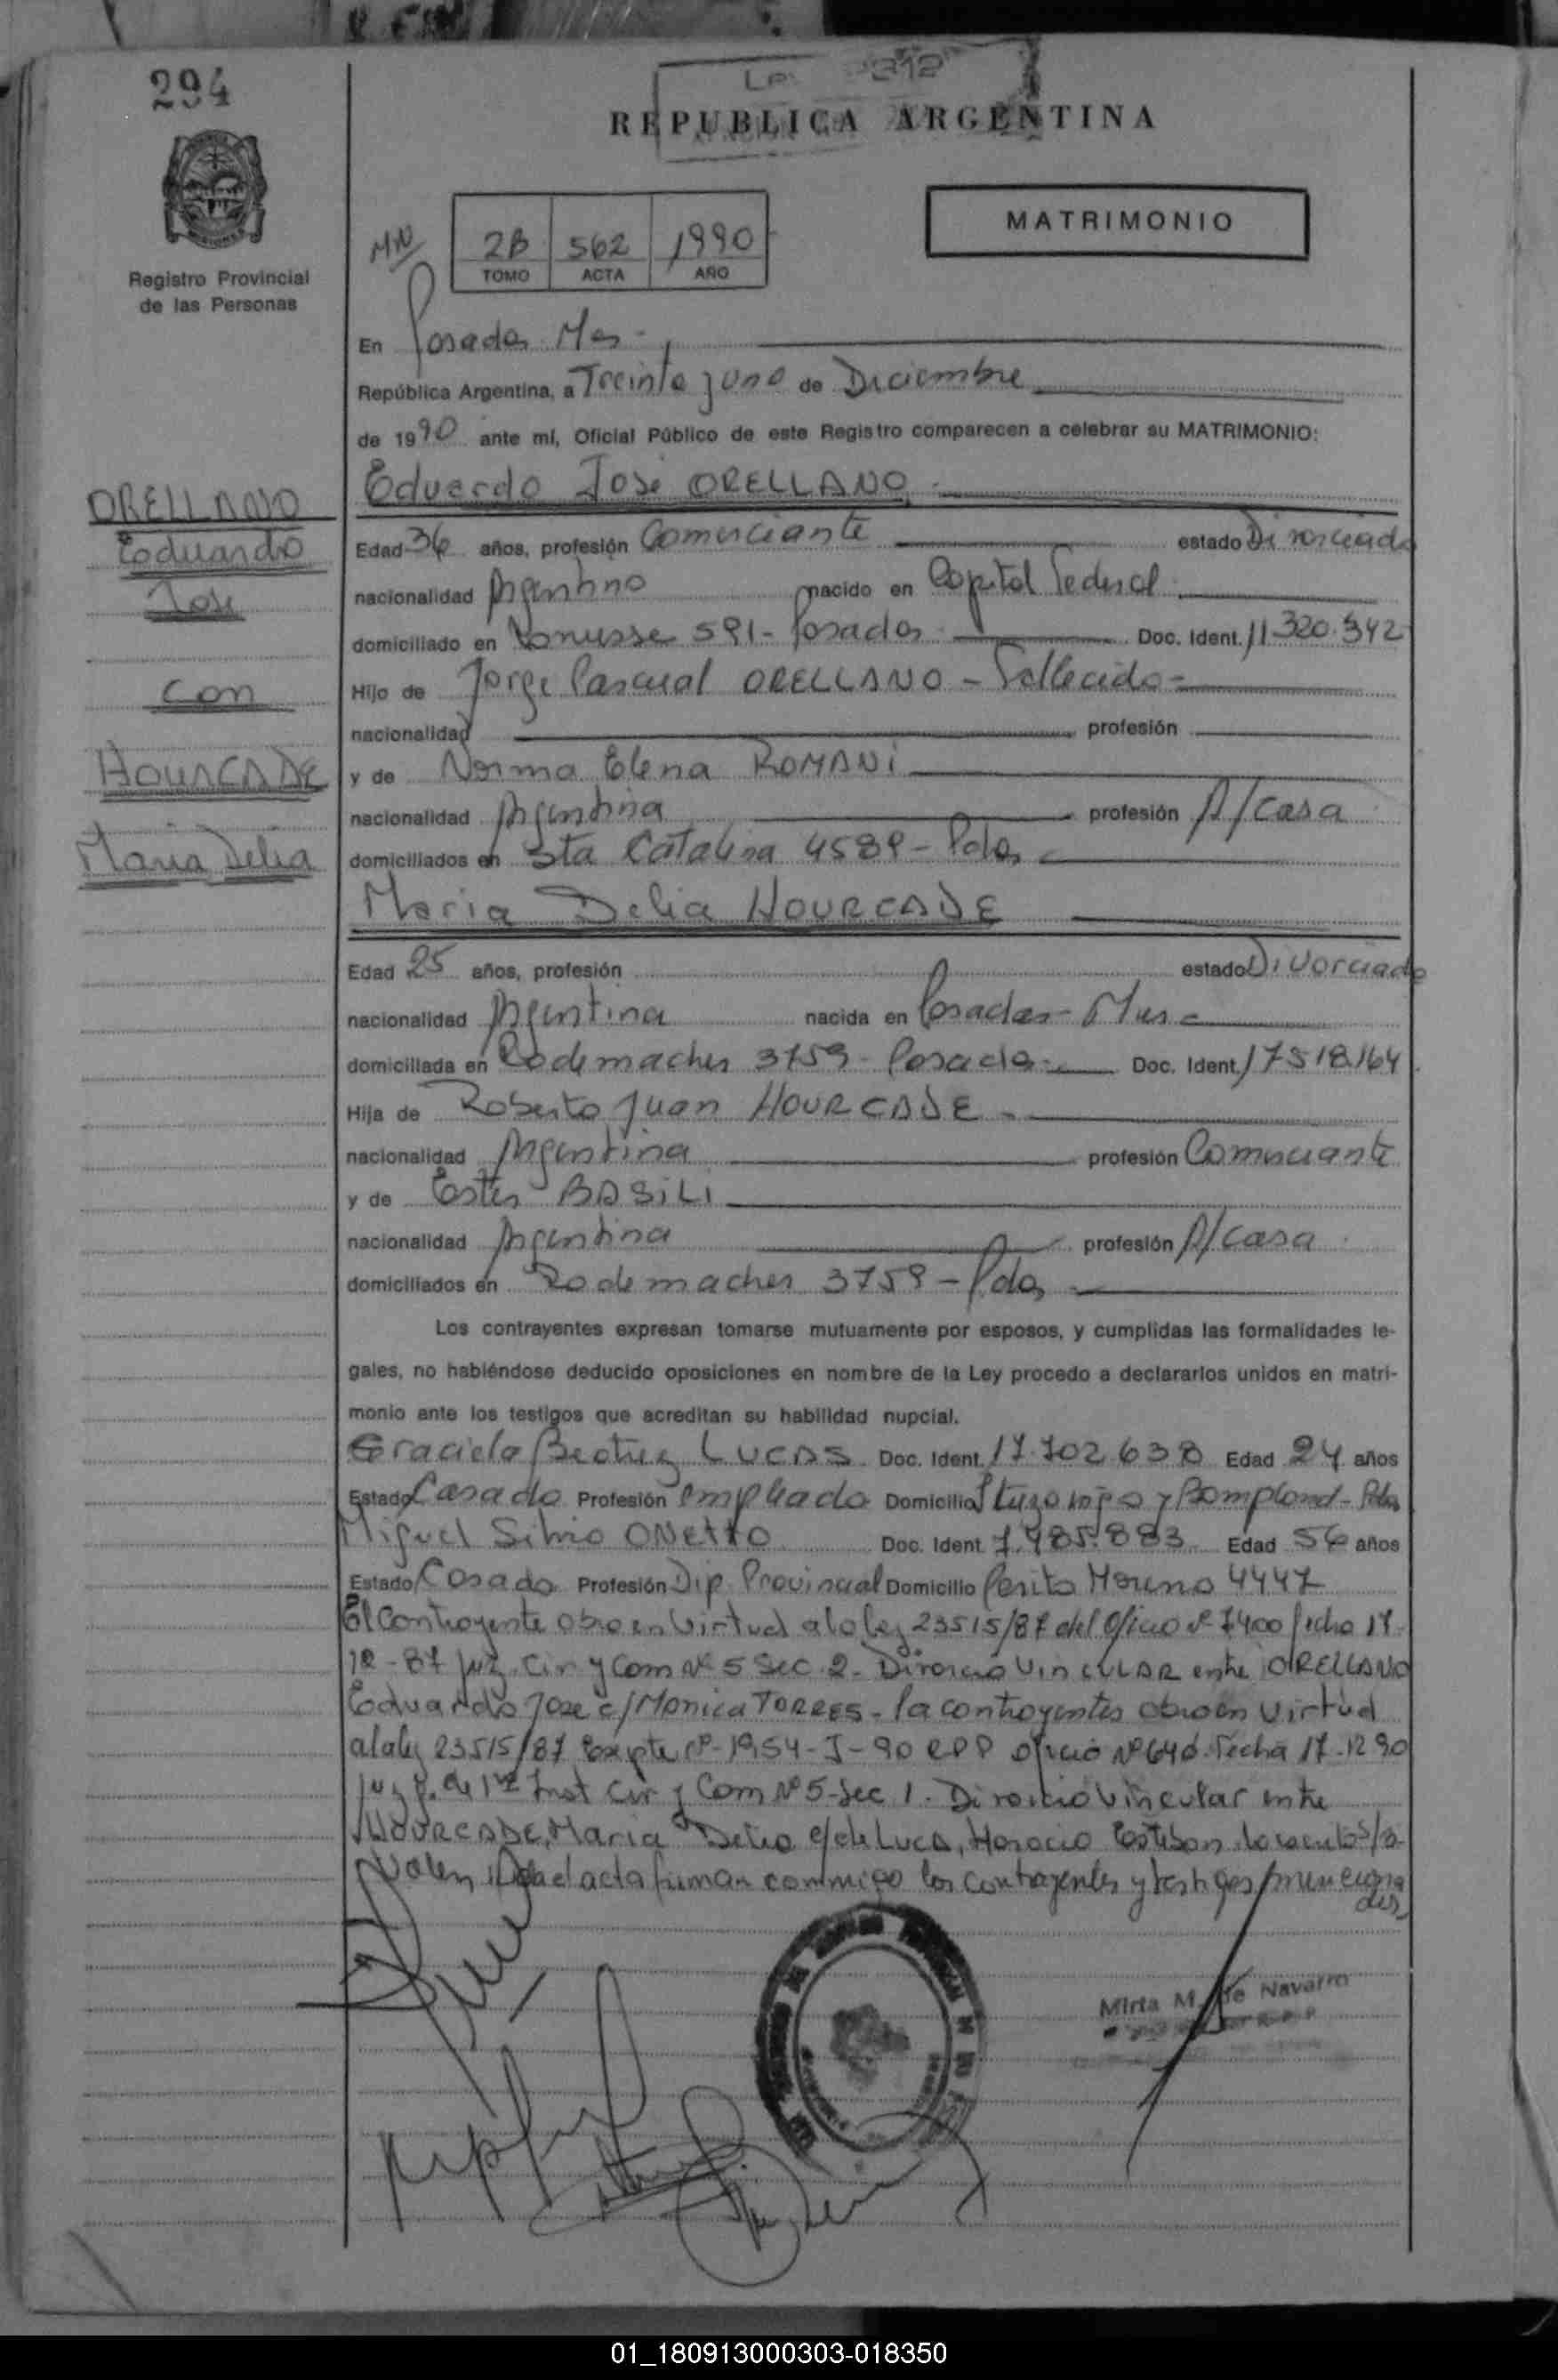 294
312
REPUBLICA ARGENTINA
MATRIMONIO
2B 562 1990
TOMO ACTA AÑO
Registro Provincial
de las Personas
En Posadas Mes
República Argentina, a Treinta y uno de Diciembre
de 1990 ante mí, Oficial Público de este Registro comparecen a celebrar su MATRIMONIO:
Eduardo José ORELLANO
ORELLANO
Eduardo
José
con
HOURCADE
Maria Delia
Edad 36 años, profesión Comerciante estado Divorciado
nacionalidad Argentino nacido en Capital Federal
domiciliado en 591 - Posadas Doc. Ident. 11.320.342
Hijo de Jorge Pascual ORELLANO - Fallecido -
nacionalidad profesión
y de Norma Elena ROMANI
nacionalidad Argentina profesión A/casa
domiciliados en Sta Catalina 4589 - Pdas
Maria Delia HOURCADE
Edad 25 años, profesión estado Divorciada
nacionalidad Argentina nacida en Posadas - Mnes
domiciliada en Rademacher 3759 - Posadas Doc. Ident. 17518164
Hija de Roberto Juan HOURCADE
nacionalidad Argentina profesión Comerciante
y de Ester BASILI
nacionalidad Argentina profesión A/casa
domiciliados en Rademacher 3759 - Pdas
Los contrayentes expresan tomarse mutuamente por esposos, y cumplidas las formalidades le-
gales, no habiéndose deducido oposiciones en nombre de la Ley procedo a declararlos unidos en matri-
monio ante los testigos que acreditan su habilidad nupcial.
Graciela Beatriz LUCAS Doc. Ident. 17.702.638 Edad 24 años
Estado Casada Profesión empleada Domicilio Ituzaingo y Bompland - Pdas
Miguel Silvio ONETTO Doc. Ident. 7.485.883 Edad 56 años
Estado Casado Profesión Dip. Provincial Domicilio Perito Moreno 4447
El Contrayente obro en Virtud a la ley 23515/87 del Oficio Nº 7400 fecha 17
12-87 Juz. Civ y Com Nº 5 Sec. 2 - Divorcio VINCULAR entre ORELLANO
Eduardo Jose c/ Monica TORRES - la contrayentes obro en virtud
a la ley 23515/87 Expte Nº 1954-J-90 RPP oficio Nº 640 Fecha 17-12 90
Juzg. de 1ra Inst Civ y Com Nº 5 - Sec 1. Divorcio Vincular entre
HOURCADE, Maria Delia c/ de LUCA, Horacio Esteban
Valen acta firman conmigo los contrayentes y testigos menciona
dos
Mirta M. de Navarro
01_180913000303-018350